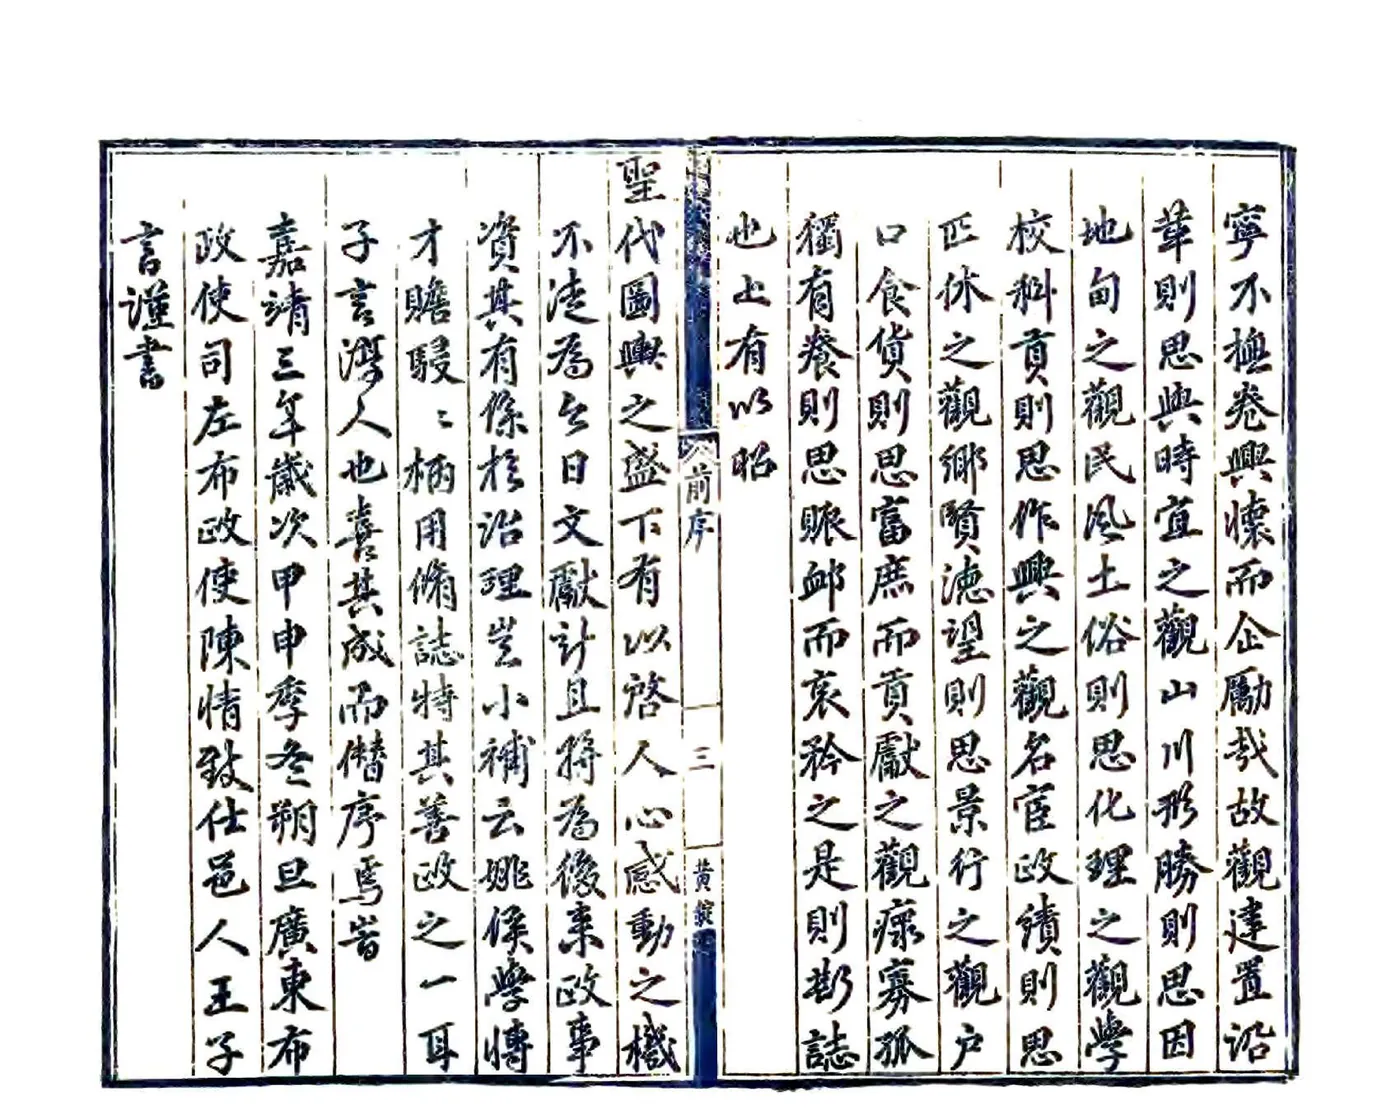 寧不撫卷興懷而企勵哉故觀建置沿
革則思與時宜之觀山川形勝則思因
地旬之觀民風土俗則思化理之觀學
校科貢則思作興之觀名宦政績則思
匹休之觀鄉賢德望則思景行之觀户
口食貨則思富庶而貢獻之觀瘝寡孤
獨有養則思賑卹而哀矜之是則斯誌
也上有以昭
前序
三
黄綻
聖代圖輿之盛下有以啓人心感動之機
不徒為今日文獻計且將為後来政事
資其有條於治理豈小補云姚侯學博
才贍駸〻柄用脩誌特其善政之一耳
子言溧人也喜其成而僣序焉旹
嘉靖三年歲次甲申季冬朔旦廣東布
政使司左布政使陳情致仕邑人王子
言謹書